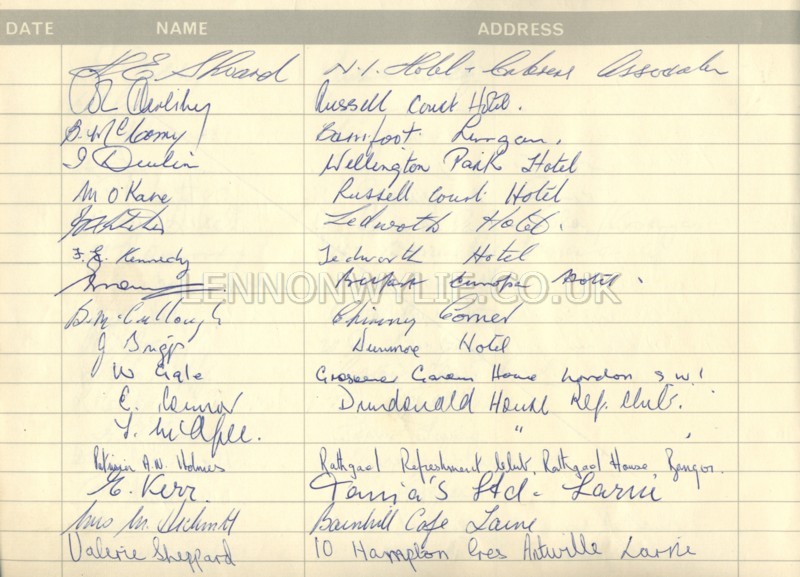 DATE NAME ADDRESS
E. Shoard N.I. Hotel & Caterers Association
Russell Court Hotel.
B. McCloomy Lurgan.
J Devlin Wellington Park Hotel
M O'Kane Russell Court Hotel
Tedworth Hotel.
Kennedy Tedworth Hotel
Belfast Europa Hotel.
B. McCullough Chimney Corner
J Briggs Dunmore Hotel
W Cagle Grosvenor Gardens House London S.W.1
E. Connor Dundonald House Ref. Club.
T. McAfee. " "
Patricia A.N. Holmes Rathgael Refreshment Club, Rathgael House, Bangor.
E. Kerr. Tania's Ltd - Larne
Mrs M. Cafe Larne
Valerie Sheppard 10 Hampton Cres Antiville Larne
LENNONWYLIE.CO.UK